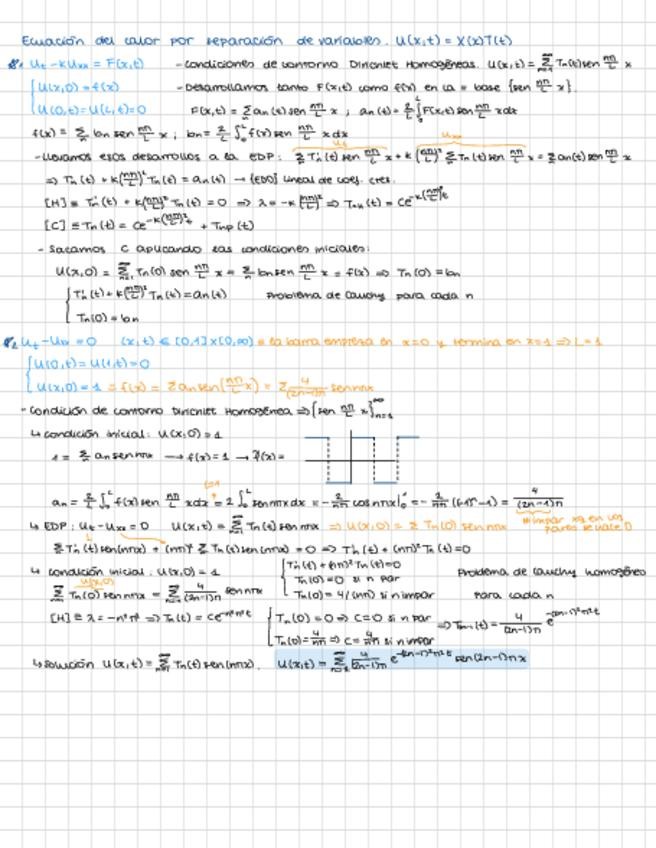 Ecuación del calor por separación de variables. U(x,t) = X(x)T(t)
8.1 Ut - KUxx = F(x,t) - Condiciones de contorno Dirichlet Homogéneas. U(x,t) = Σ Tn(t) sen nπ/L x
U(x,0) = f(x) - Desarrollamos tanto F(x,t) como f(x) en la base {sen nπ/L x}.
U(0,t) = U(L,t) = 0 F(x,t) = Σ an(t) sen nπ/L x ; an(t) = 2/L ∫₀ᴸ F(x,t) sen nπ/L x dx
f(x) = Σ bn sen nπ/L x ; bn = 2/L ∫₀ᴸ f(x) sen nπ/L x dx
Ut Uxx
- Llevamos esos desarrollos a la EDP: Σ T'n(t) sen nπ/L x + K (nπ/L)² Σ Tn(t) sen nπ/L x = Σ an(t) sen nπ/L x
⇒ T'n(t) + K(nπ/L)² Tn(t) = an(t) → (EDO) Lineal de coef. ctes.
[H] ≡ T'n(t) + K(nπ/L)² Tn(t) = 0 ⇒ λ = -K (nπ/L)² ⇒ Tn,H(t) = Ce^-K(nπ/L)²t
[C] ≡ Tn(t) = Ce^-K(nπ/L)²t + Tnp(t)
- Sacamos C aplicando las condiciones iniciales:
U(x,0) = Σ Tn(0) sen nπ/L x = Σ bn sen nπ/L x = f(x) ⇒ Tn(0) = bn
T'n(t) + K(nπ/L)² Tn(t) = an(t) Problema de Cauchy para cada n
Tn(0) = bn
8.2 Ut - Uxx = 0 (x,t) ∈ [0,1]×[0,∞) = La barra empieza en x=0 y termina en x=1 ⇒ L=1
U(0,t) = U(1,t) = 0
U(x,0) = 1 = f(x) = Σ an sen(nπ/L x) = Σ 4/(2n-1)π sen nπx
- Condición de contorno Dirichlet Homogénea ⇒ {sen nπ/L x}∞n=1
↳ condición inicial: U(x,0) = 1
1 = Σ an sen nπx → f(x) = 1 → f̃(x) =
L=1
an = 2/L ∫₀ᴸ f(x) sen nπ/L x dx = 2 ∫₀¹ sen nπx dx = -2/nπ cos nπx|₀¹ = -2/nπ ((-1)ⁿ - 1) = 4/(2n-1)π
n impar xq en los pares se vale 0
↳ EDP: Ut - Uxx = 0 U(x,t) = Σ Tn(t) sen nπx ⇒ U(x,0) = Σ Tn(0) sen nπx
Σ T'n(t) sen(nπx) + (nπ)² Σ Tn(t) sen(nπx) = 0 ⇒ T'n(t) + (nπ)² Tn(t) = 0
↳ condición inicial: U(x,0) = 1 T'n(t) + (nπ)² Tn(t) = 0
U(x,0) Tn(0) = 0 si n par Problema de Cauchy homogéneo
Σ Tn(0) sen nπx = Σ 4/(2n-1)π sen nπx Tn(0) = 4/(nπ) si n impar para cada n
[H] ≡ λ = -n²π² ⇒ Tn(t) = Ce^-n²π²t Tn(0) = 0 ⇒ C = 0 si n par
Tn(0) = 4/nπ ⇒ C = 4/nπ si n impar ⇒ T2n-1(t) = 4/(2n-1)π e^-(2n-1)²π²t
↳ Solución U(x,t) = Σ Tn(t) sen(nπx). U(x,t) = Σ 4/(2n-1)π e^-(2n-1)²π²t sen(2n-1)πx